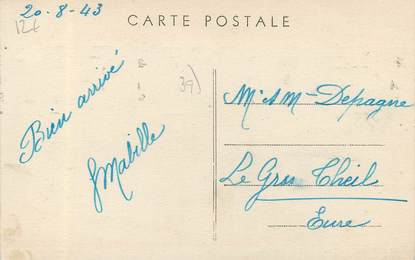 20-8-43
12€
CARTE POSTALE
39)
Bien arrivé
Mabille
Mr & Mme Depagne
Le Gros Theil
Eure